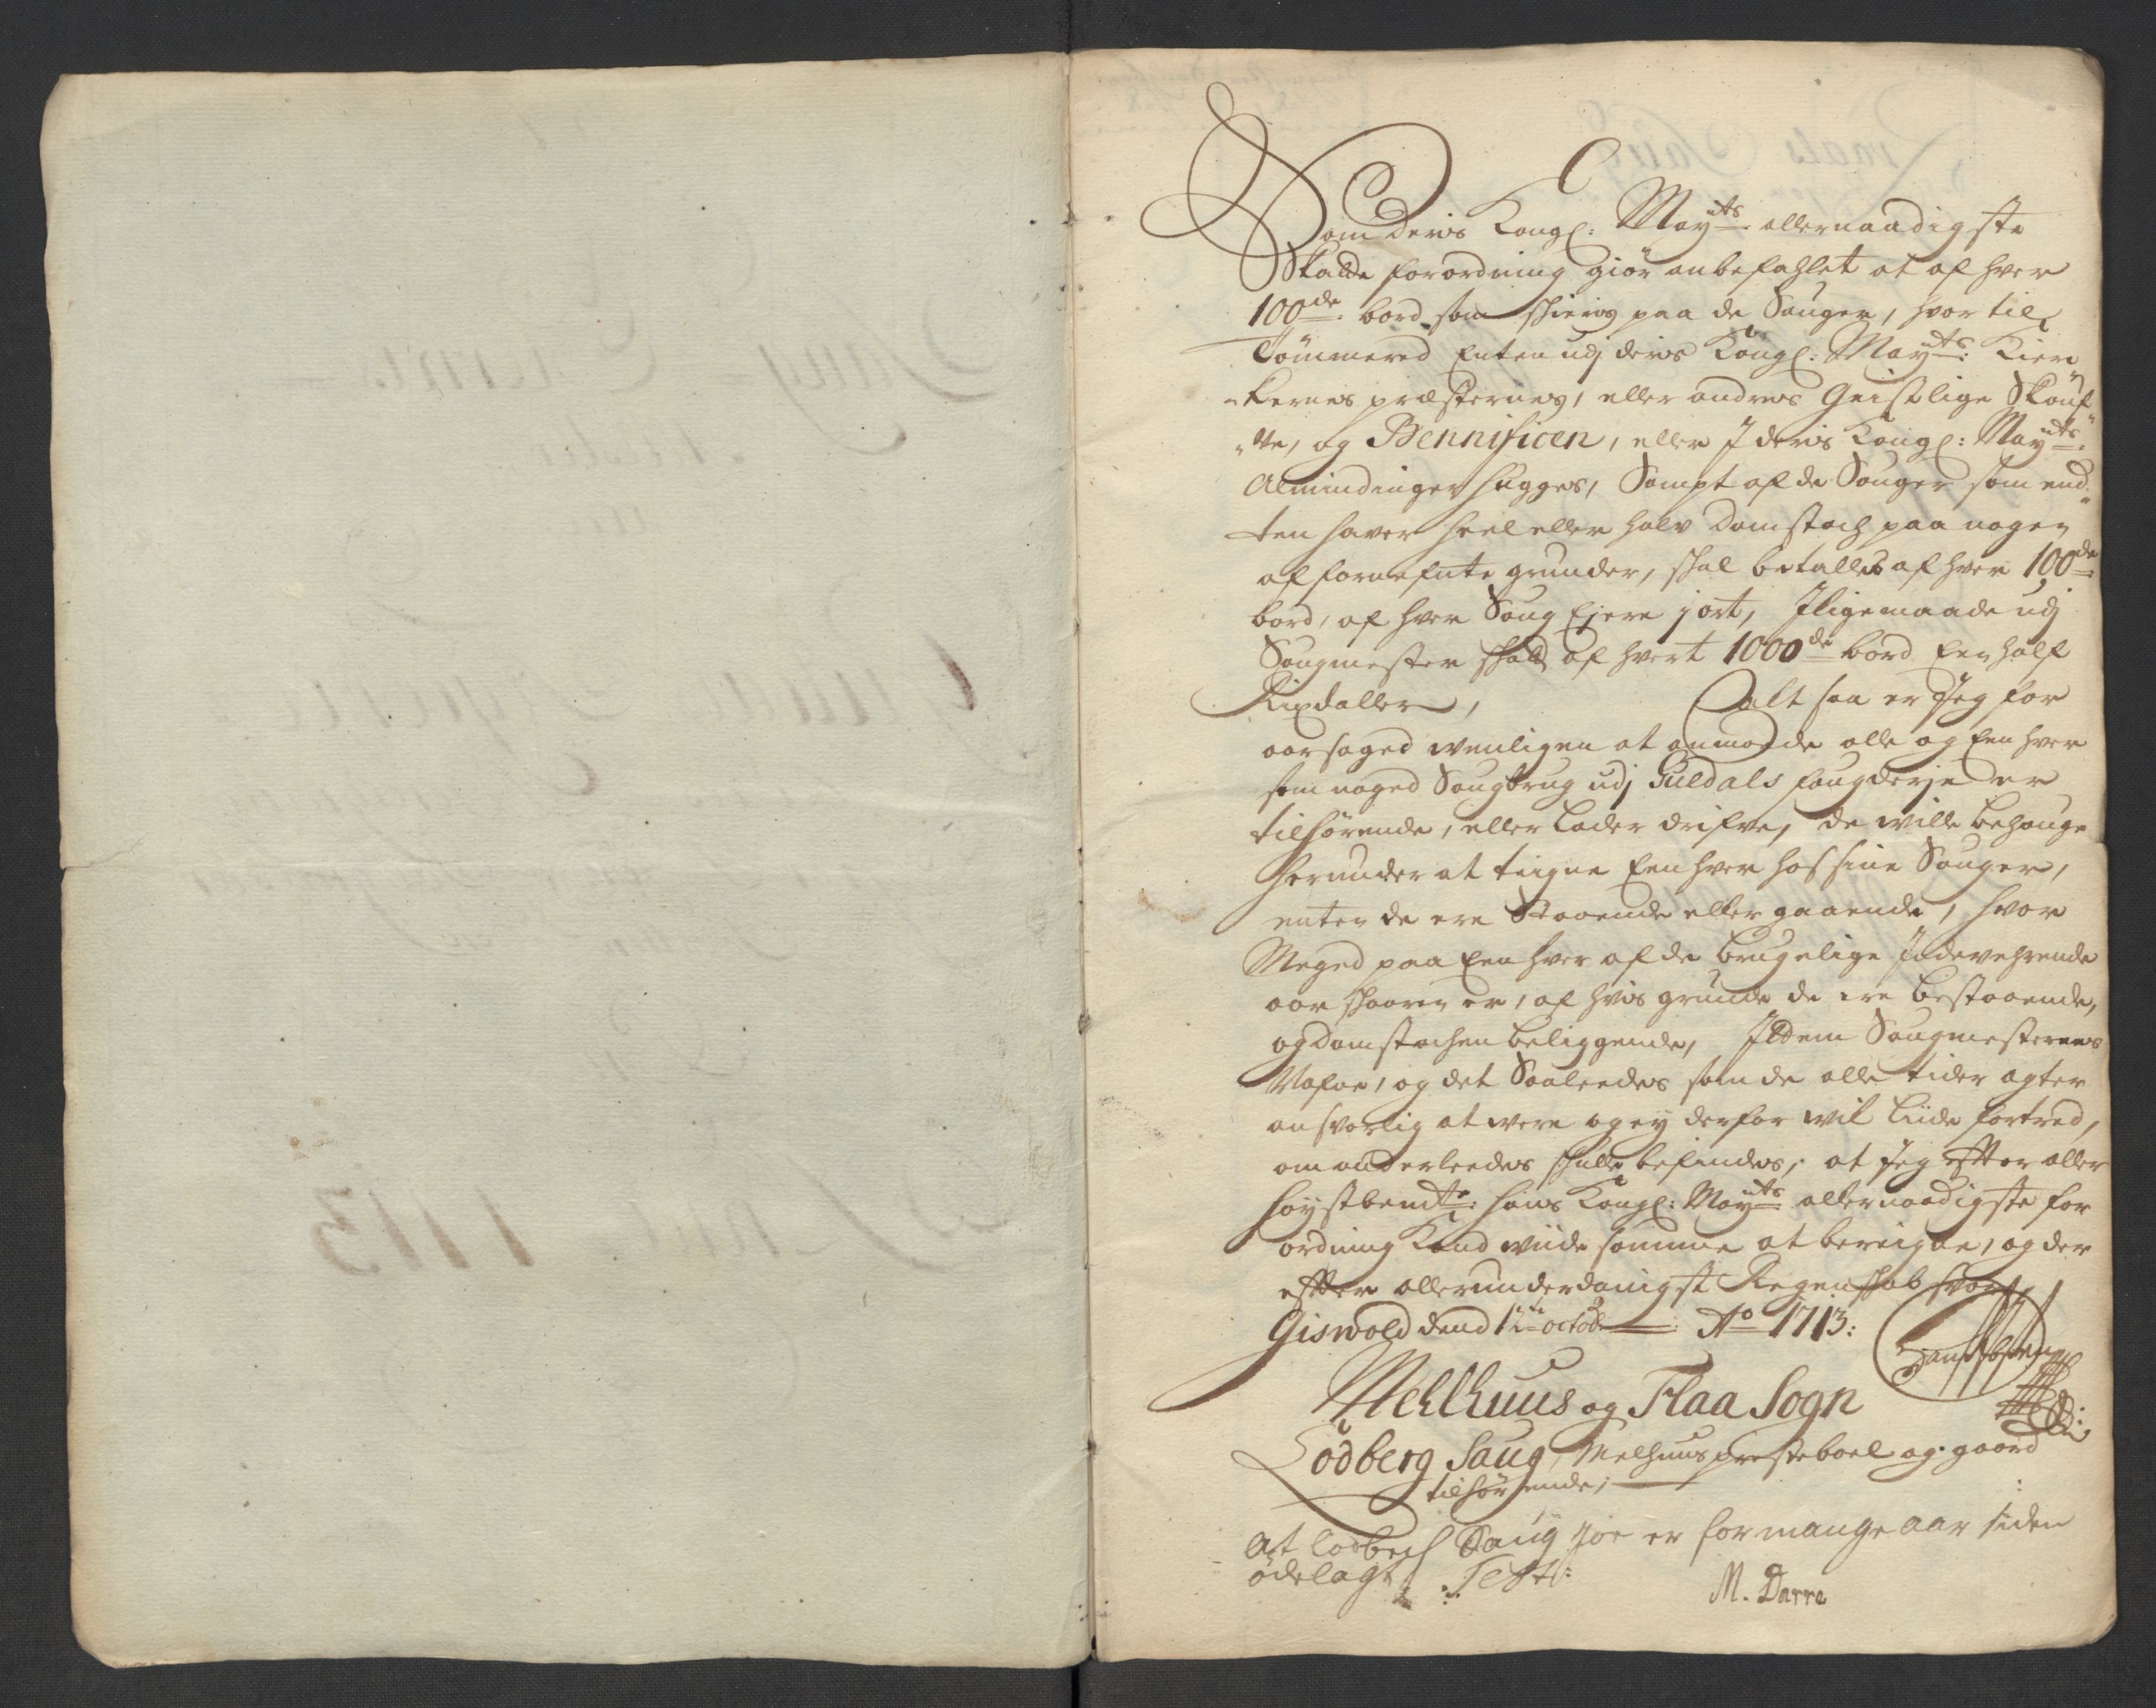 Som deris Kongl: May:ts allernaadigste
Skatte forordning giør anbefahlet at af hver
100de bord som skieris paa de Sauger, hvor til
Tømmered Enten udj deris Kongl: May:ts Kier-
-kernes præsternes, eller andres Geistlige
og Bennificen, eller J deris Kongl: May:ts
Almindinger hugges, Sampt af de Sauger som end-
ten haver heel eller halv Damstoch paa nogen
af forneffnte grunder, skal betalles af hver 100de
bord, af hver Saug Ejere j ort, Jligemaade udj
Saugmester skatt af hvert 1000de bord Een half
Rixdaller, alt saa er Jeg for
aarsaged wenligen at anmode alle og Een hver
som noged Saugbrug udj Guldals fougderje er
tilhørende, eller Lader drifve, de wille behage
herunder at teigne Een hver hos sine Sauger,
enten de ere Staaende eller gaaende, hvor
Meged paa Een hver af de brugelige Jndeverende
aar skaaren er, af hvis grunde de ere bestaaende,
og Damstochen beliggende, Jttem Saugmesternes
Nafne, og det Saaleedes som de alle tider agter
ansvarlig at were og ey derfor wil Liide fortred,
om anderleedes skulle befindes, at Jeg effter aller
høystbemte: hans Kongl: May:ts allernaadigste for
ordning Kand wiide summe at bereigne, og der
effter allerunderdanigst Regenskab
Giswold dend 12 octobr Ao 1713:
Mehlhuus og Flaa Sogn
Lødberg Saug, Melhuus presteboel og gaard
tilhørende,
At Saug er for mange aar siden
ødelagt Test:
M. Darre